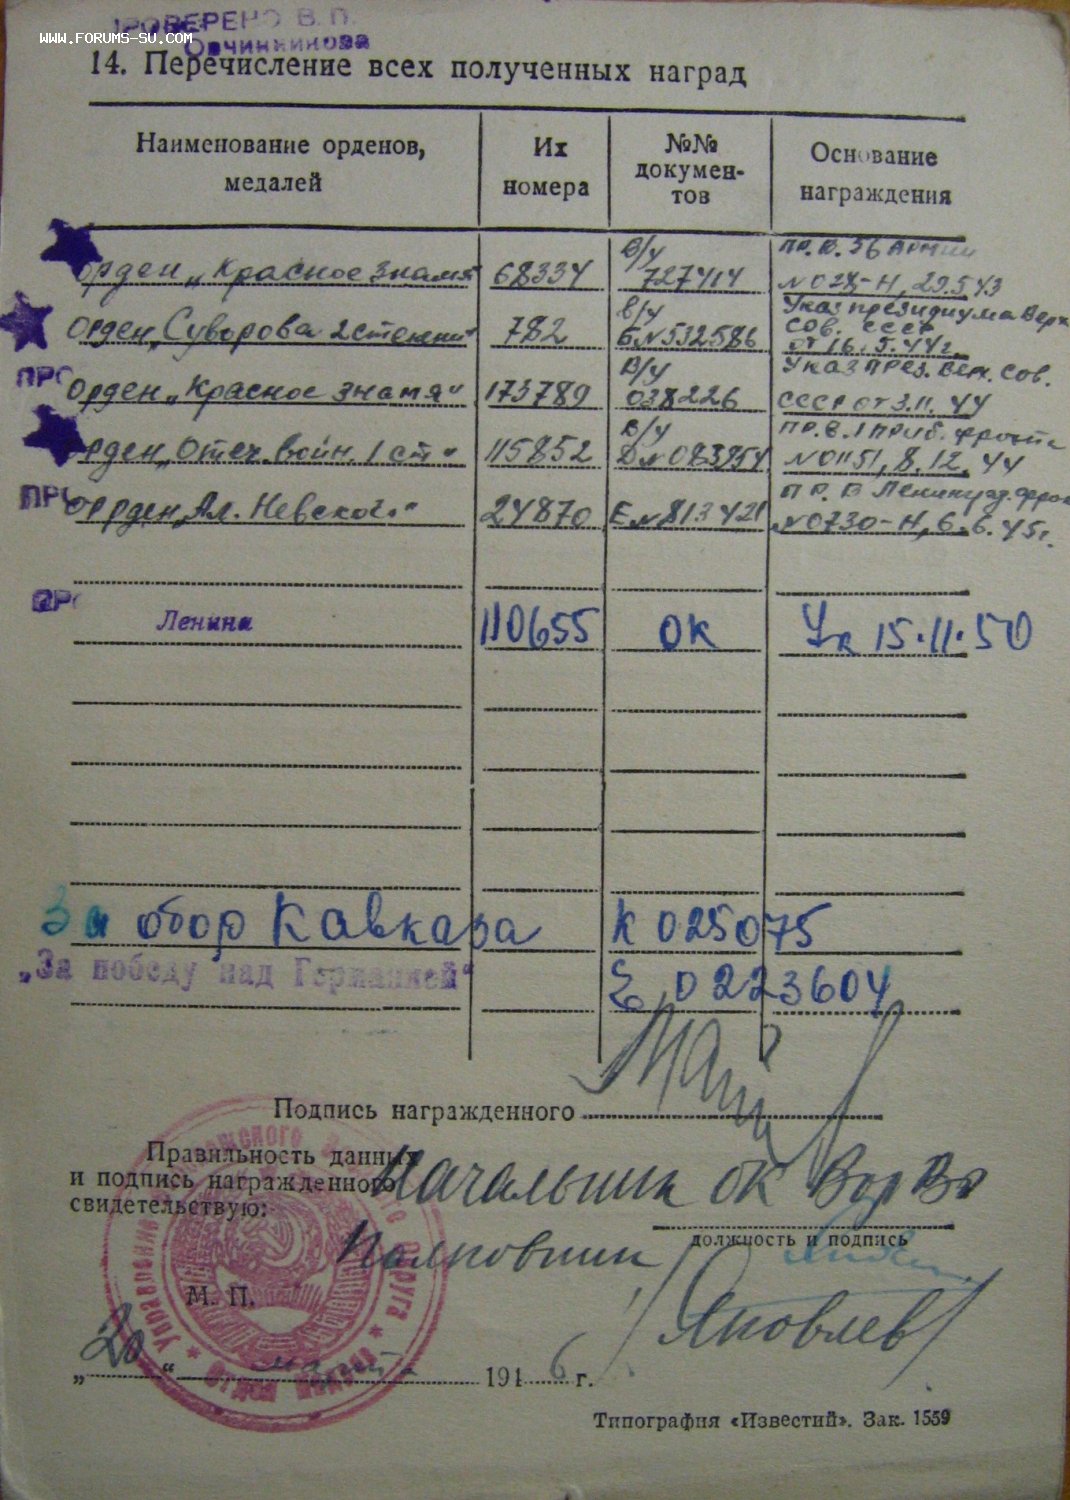 ПРОВЕРЕНО В. П.
WWW.FORUMS-SU.COM
Овчинникова
14. Перечисление всех полученных наград
Наименование орденов, медалей
Их номера
№№ докумен-
тов
Основание награждения
Орден „Красное Знамя“ 68334 В/у 727414 Пр. В. 56 Армии №028-Н, 29.5.43
Орден „Суворова 2 степени“ 782 В/у Б№532586 Указ президиума Верх. Сов. СССР от 16.5.44г.
ПРО Орден „Красное Знамя“ 173789 В/у 038226 Указ През. Верх. Сов. СССР от 3.11.44
Орден „Отеч. войн. 1 ст“ 115852 В/у Д№083954 Пр. В. 1 Приб. фронта №01151, 8.12.44
ПРО Орден „Ал. Невского“ 24870 Е№813421 Пр. В Ленинград. фрон №0730-Н, 6.6.45г.
ПРО Ленина 110655 ОК Ук 15.11.50
За обор Кавказа К 025075
„За победу над Германией“ Е 0223604
Подпись награжденного
Правильность данных
и подпись награжденного
свидетельствую:
Начальник ОК Вор Во
должность и подпись
Полковник /Яковлев/
М. П.
„20“ марта 1946 г.
Типография «Известий». Зак. 1559